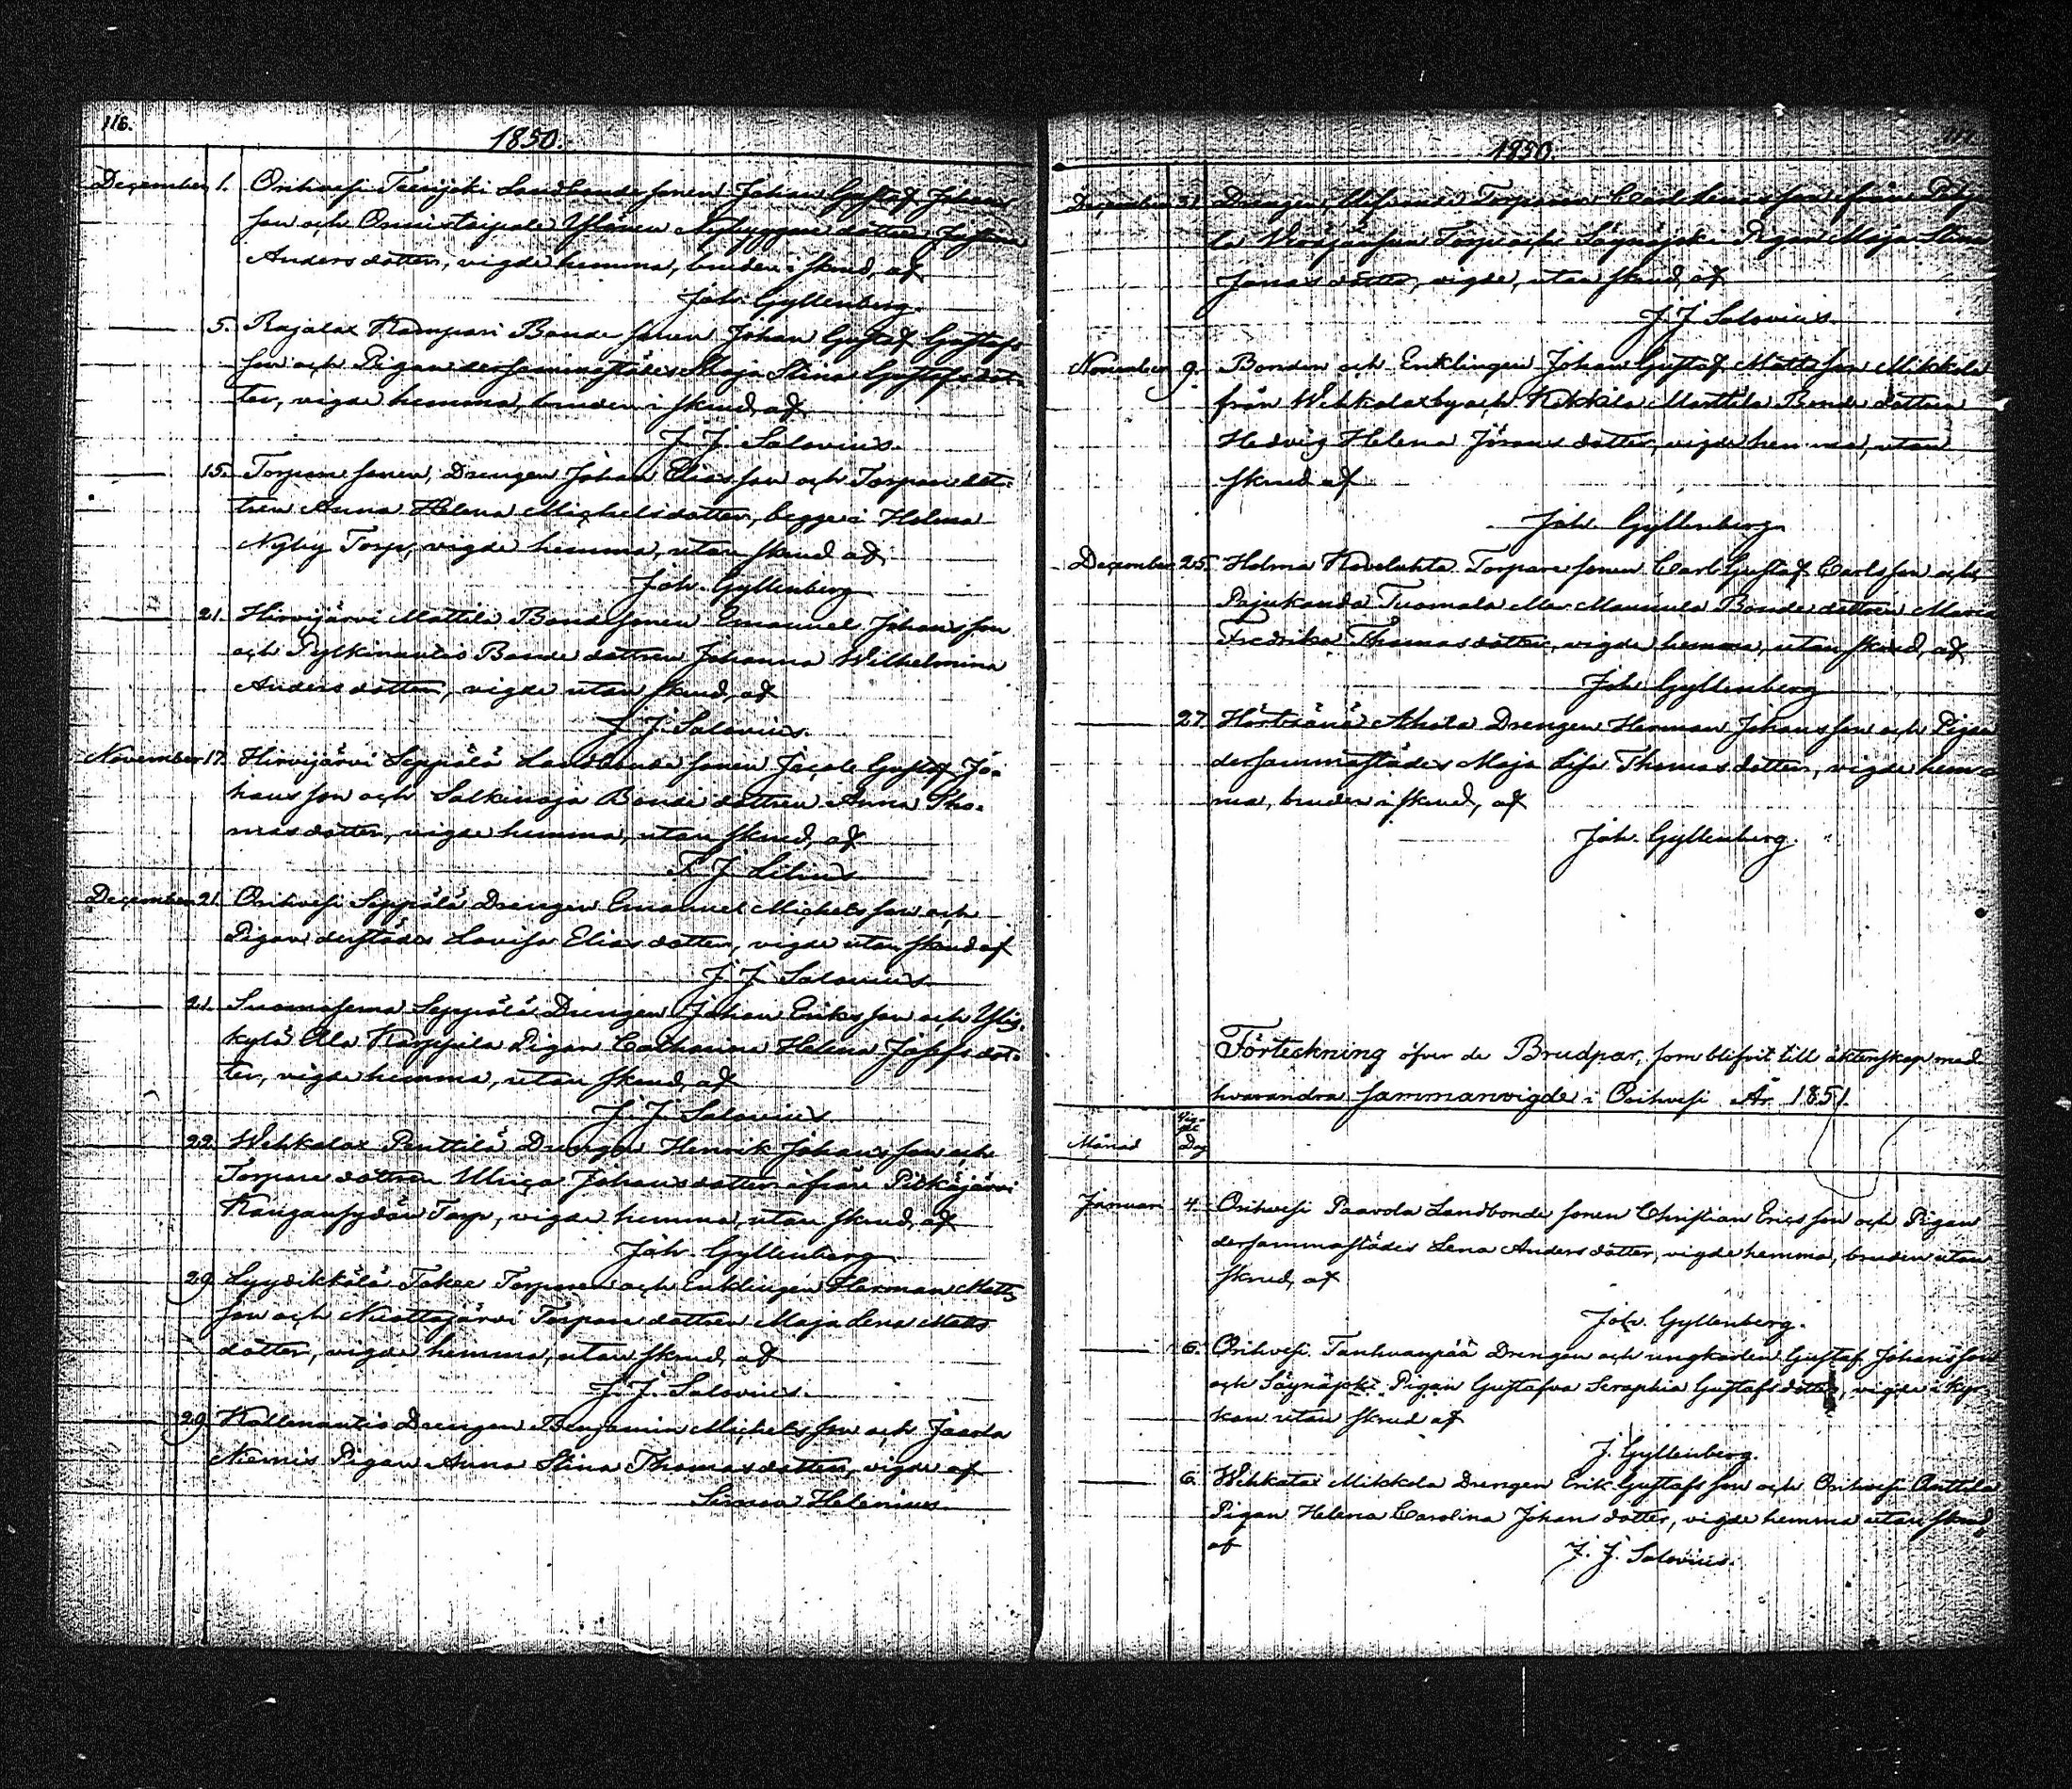 116.
1850.
December 1. Orihvesi Teerijoki Landbonde sonen Johan Gustaf Johans
son och Onnistaipale Nybyggare dottren
Anders dotter, vigde hemma, bruden i skrud, af
Joh. Gyllenberg.
5. Rajalax Kampari Bonde sonen Johan Gustaf Gustafs
son och Pigan dersammastädes Maja Stina Gustafs dot-
ter, vigde hemma, bruden i skrud, af
J. J. Salovius.
15. Torpare sonen, Drengen Johan Elias son och Torpare dot-
tren Anna Helena Michels dotter, begge i Holma
Nyby Torp, vigde hemma, utan skrud af
Joh. Gyllenberg
21. Hirvijärvi Mattila Bonde sonen Emanuel Johans son
och Pylkinautio Bonde dottren Johanna Wilhelmina
Anders dotter, vigde utan skrud, af
J. J. Salovius.
November 17. Hirvijärvi Seppälä Landbonde sonen Jacob Gustaf Jo-
hans son och Salkinoja Bonde dottren Anna Tho-
mas dotter, vigde hemma, utan skrud, af
F. J. Lilius
December 21. Orihvesi Seppälä Drengen Emanuel Michels son och
Pigan derstädes Lovisa Elias dotter, vigde utan skrud af
J. J. Salovius.
21. Suomasema Seppälä Drengen Johan Eriks son och Ylis-
kylä Ala Karppila Pigan Catharina Helena Josefs dot-
ter, vigde hemma, utan skrud, af
J. J. Salovius.
22. Wehkalax Penttilä Drengen Henrik Johans son och
Torpare dottren Ulrica Johans dotter ifrån Pitkäjärvi
Kangansydän Torp, vigde hemma, utan skrud, af
Joh. Gyllenberg
29. Lyydikkälä Tokee Torparen och Enklingen Herman Matts
son och Nuottajärvi Torpare dottren Maja Lena Matts
dotter, vigde hemma, utan skrud, af
J. J. Salovius.
29. Kollenautio Drengen Benjamin Michels son och Jaavla
Niemis Pigan Anna Stina Thomas dotter, vigde af
Simon Helenius.
117.
1850.
December 31. Drengen Torparen Carl son ifrån
la Torp och Säynäjoki Pigan Maja Stina
Jonas dotter, vigde, utan skrud, af
J. J. Salovius.
November 9. Bonden och Enklingen Johan Gustaf Matts son Mikkola
från Wehkalax by och Kokkila Marttila Bonde dottren
Hedvig Helena Jörans dotter, vigde hemma, utan
skrud af
Joh. Gyllenberg.
December 25. Holma Kovelahta Torpare sonen Carl Gustaf Carls son och
Pajukanda Tuomala Bonde dottren Maria
Fredrika Thomas dotter, vigde hemma, utan skrud, af
Joh Gyllenberg
27. Ahola Drengen Herman Johans son och Pigan
dersammastädes Maja Lisa Thomas dotter, vigde hem-
ma, bruden i skrud, af
Joh. Gyllenberg.
Förteckning öfver de Brudpar, som blifvit till äktenskap med
hvarandra sammanvigde i Orihvesi År 1851.
Månad Dag
Januari 4. Orihvesi Paavola Landbonde sonen Christian Erics son och Pigan
dersammastädes Lena Anders dotter, vigde hemma, bruden utan
skrud, af
Joh. Gyllenberg.
6. Orihvesi Tanhuanpää Drengen och ungkarlen Gustaf Johans son
och Säynäjoki Pigan Gustafva Seraphia Gustafs dotter, vigde i kyr-
kan utan skrud af
J. Gyllenberg.
6. Wehkalax Mikkola Drengen Erik Gustafs son och Orihvesi Anttila
Pigan Helena Carolina Johans dotter, vigde hemma utan skrud,
af
J. J. Salovius.